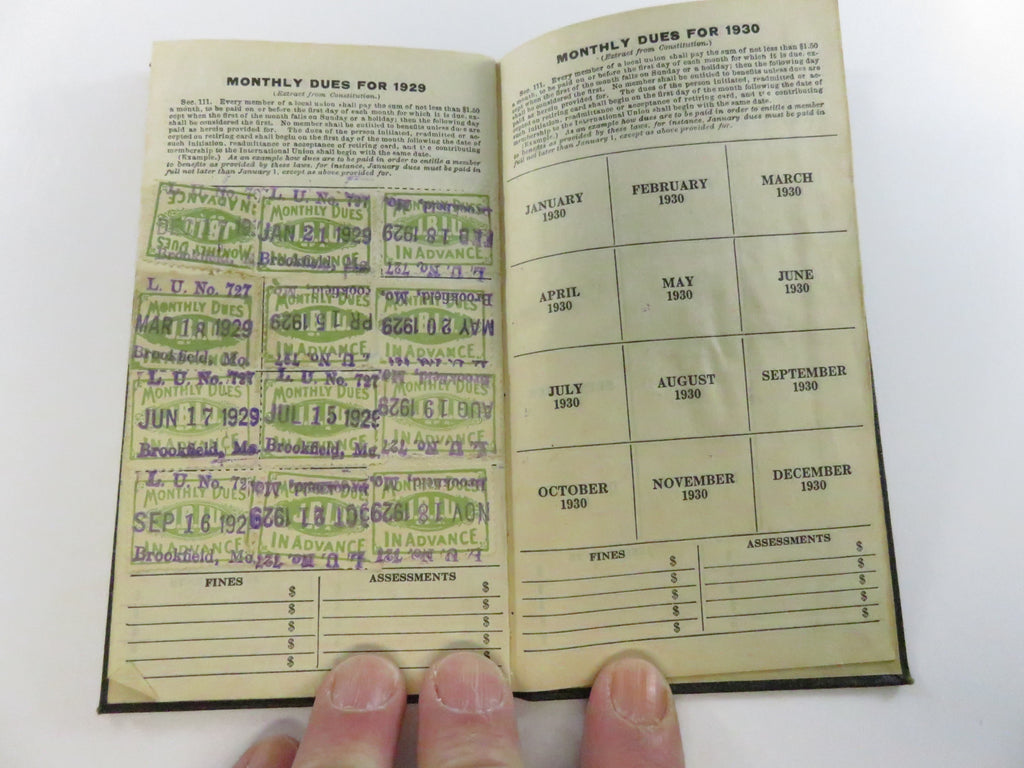 MONTHLY DUES FOR 1929
(Extract from Constitution.)
Sec. 111. Every member of a local union shall pay the sum of not less than $1.50
a month, to be paid on or before the first day of each month for which it is due, ex-
cept when the first of the month falls on Sunday or a holiday; then the following day
shall be considered the first. No member shall be entitled to benefits unless dues are
paid as herein provided for. The dues of the person initiated, readmitted or ac-
cepted on retiring card shall begin on the first day of the month following the date of
such initiation, readmittance or acceptance of retiring card, and the contributing
membership to the International Union shall begin with the same date.
(Example.) As an example how dues are to be paid in order to entitle a member
to benefits as provided by these laws, for instance, January dues must be paid in
full not later than January 1, except as above provided for.
L. U. No.
MONTHLY DUES
IN ADVANCE
L. U. No.
MONTHLY DUES
JAN 21 1929
IN ADVANCE
Brookfield,
FEB 18 1929
IN ADVANCE
L. U. No. 727
L. U. No. 727
MONTHLY DUES
MAR 18 1929
IN ADVANCE
Brookfield, Mo.
MONTHLY DUES
PR 15 1929
IN ADVANCE
U. No. 727
Brookfield, Mo.
MONTHLY DUES
MAY 20 1929
IN ADVANCE
L. U. No. 727
MONTHLY DUES
JUN 17 1929
IN ADVANCE
Brookfield, Mo
L. U. No. 727
MONTHLY DUES
JUL 15 1929
IN ADVANCE
Brookfield, Mo
AUG 19 1929
IN ADVANCE
L. U. No. 727
L. U. No. 72
MONTHLY DUES
SEP 16 192
IN ADVANCE
Brookfield, Mo.
MONTHLY DUES
OCT 21 1929
IN ADVANCE
L. U. No. 727
MONTHLY DUES
NOV 18 1929
IN ADVANCE
L. U. No. 727
FINES
ASSESSMENTS
$ $
$ $
$ $
$ $
$ $
MONTHLY DUES FOR 1930
(Extract from Constitution.)
Sec. 111. Every member of a local union shall pay the sum of not less than $1.50
a month, to be paid on or before the first day of each month for which it is due, ex-
cept when the first of the month falls on Sunday or a holiday; then the following day
shall be considered the first. No member shall be entitled to benefits unless dues are
paid as herein provided for. The dues of the person initiated, readmitted or ac-
cepted on retiring card shall begin on the first day of the month following the date of
such initiation, readmittance or acceptance of retiring card, and the contributing
membership to the International Union shall begin with the same date.
(Example.) As an example how dues are to be paid in order to entitle a member
to benefits as provided by these laws, for instance, January dues must be paid in
full not later than January 1, except as above provided for.
JANUARY
1930
FEBRUARY
1930
MARCH
1930
APRIL
1930
MAY
1930
JUNE
1930
JULY
1930
AUGUST
1930
SEPTEMBER
1930
OCTOBER
1930
NOVEMBER
1930
DECEMBER
1930
FINES
ASSESSMENTS
$ $
$ $
$ $
$ $
$ $